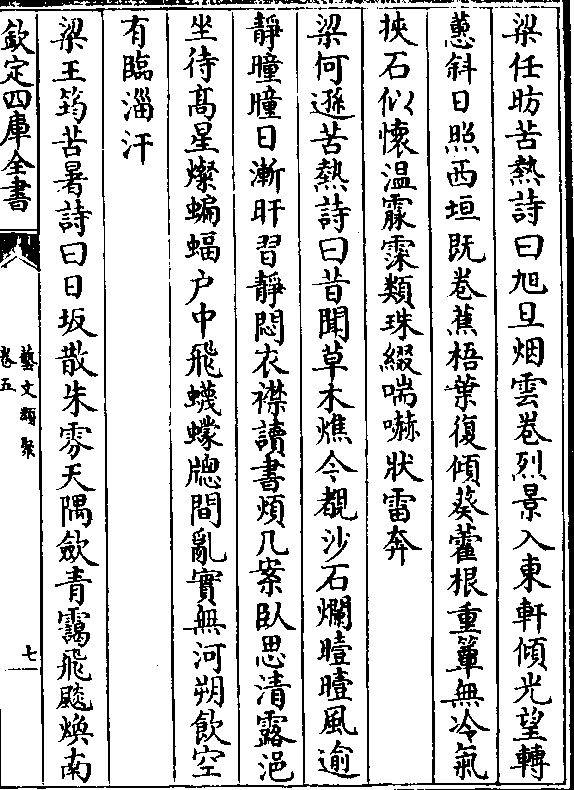 梁任昉苦熱詩曰旭旦烟雲卷烈景入東軒傾光望轉
蕙斜日照西垣既卷蕉梧葉復傾葵藿根重簟無冷氣
挾石似懷温霡霂類珠綴喘嚇狀雷奔
梁何遜苦熱詩曰昔聞草木燋今覩沙石爛曀曀風逾
靜曈曈日漸旰習靜悶衣襟讀書煩几案臥思清露浥
坐待高星燦蝙蝠户中飛蠛蠓牎間亂實無河朔飲空
有臨淄汗
梁王筠苦暑詩曰日坂散朱雰天隅斂青靄飛飈煥南
欽定四庫全書
藝文類聚
卷五
七